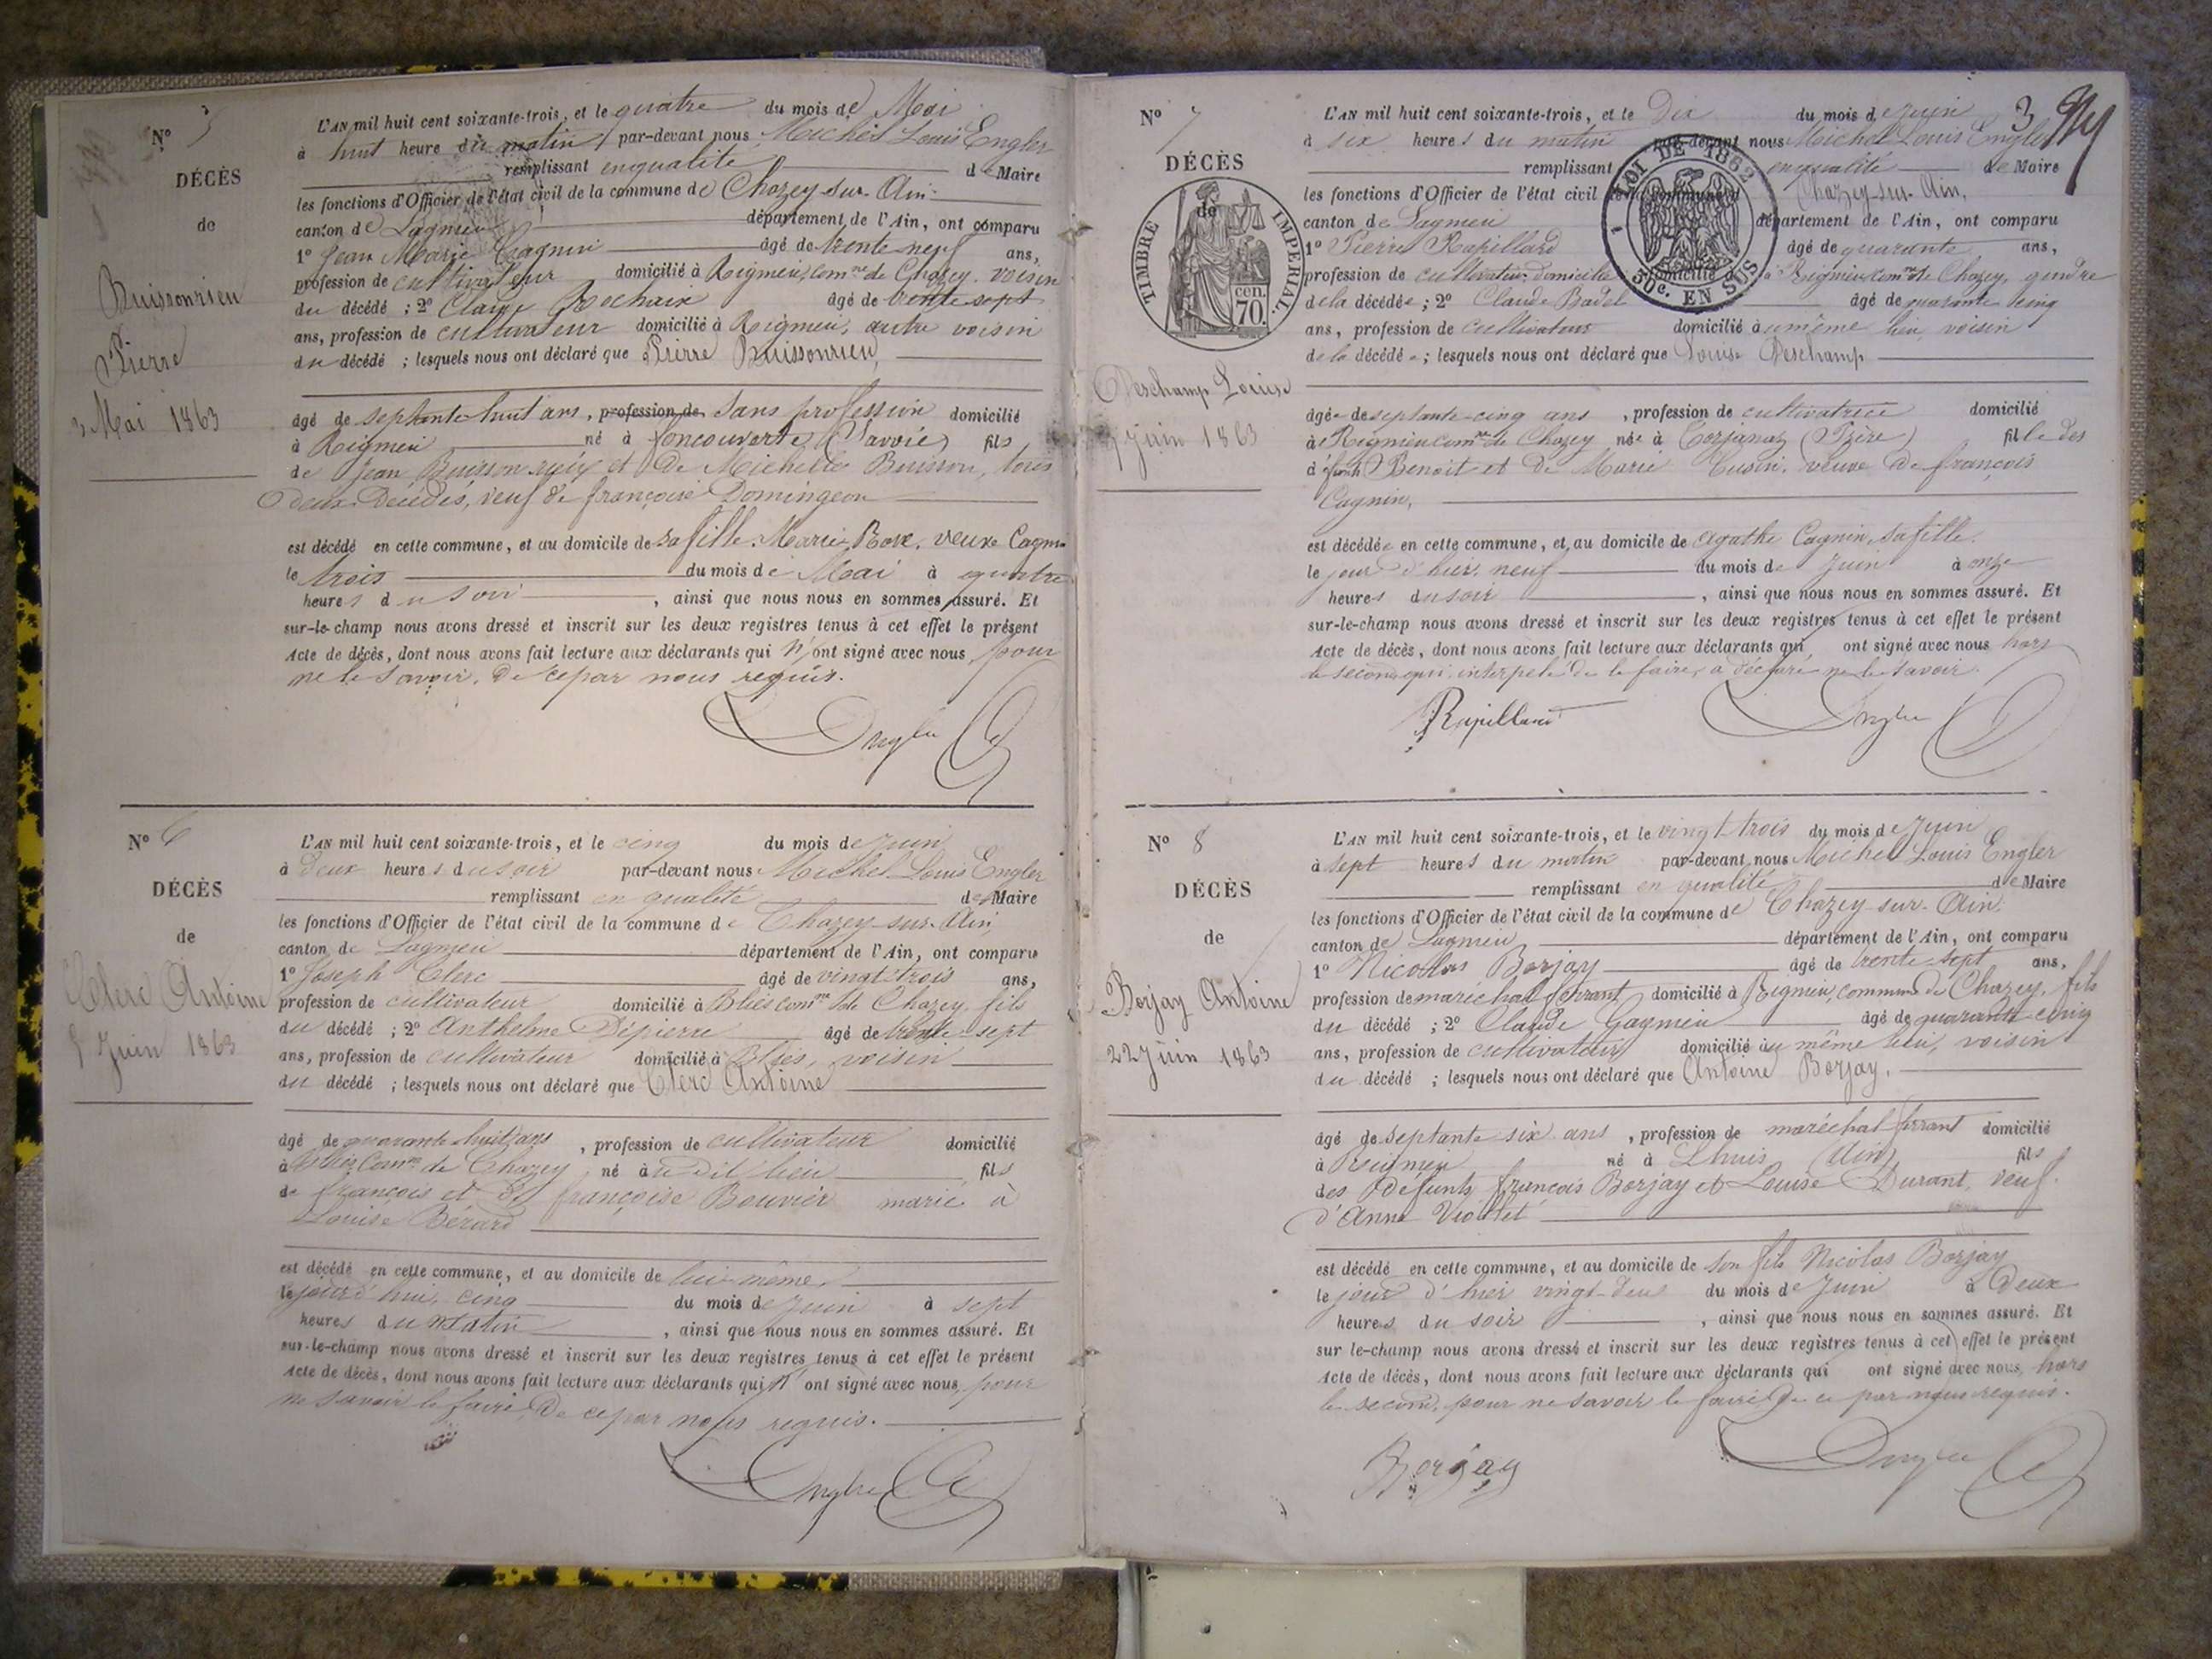 N° 5
DÉCÈS
de
Buissonrieu
Pierre
3 Mai 1863
L'AN mil huit cent soixante-trois, et le quatre du mois de Mai
à huit heure du matin par-devant nous Michel Louis Engler
remplissant en qualité de Maire
les fonctions d'Officier de l'état civil de la commune de Chazey-sur-Ain
canton de Lagnieu département de l'Ain, ont comparu
1° Jean Marie Cagnin âgé de trente neuf ans,
profession de cultivateur domicilié à Rigneu, comne de Chazey, voisin
du décédé ; 2° Claude Rochaix âgé de trente sept
ans, profession de cultivateur domicilié à Rigneu, autre voisin
du décédé ; lesquels nous ont déclaré que Pierre Buissonrieu,
âgé de septante huit ans, profession de Sans profession domicilié
à Rigneu né à foncouverte (Savoie) fils
de Jean Buissonrieu et De Michelle Buisson, tous
deux Décédés, veuf de françoise Domingeon
est décédé en cette commune, et au domicile de sa fille Marie Rose, veuve Cagnin
le trois du mois de Mai à quatre
heures du soir, ainsi que nous nous en sommes assuré. Et
sur-le-champ nous avons dressé et inscrit sur les deux registres tenus à cet effet le présent
Acte de décès, dont nous avons fait lecture aux déclarants qui n'ont signé avec nous pour
ne le savoir, De ce par nous requis.
Engler
N° 6
DÉCÈS
de
Clerc Antoine
5 Juin 1863
L'AN mil huit cent soixante-trois, et le cinq du mois de Juin
à deux heures du soir par-devant nous Michel Louis Engler
remplissant en qualité de Maire
les fonctions d'Officier de l'état civil de la commune de Chazey-sur-Ain
canton de Lagnieu département de l'Ain, ont comparu
1° Joseph Clerc âgé de vingt trois ans,
profession de cultivateur domicilié à Blies comne de Chazey, fils
du décédé ; 2° Anthelme Dépierre âgé de trente-sept
ans, profession de cultivateur domicilié à Blies, voisin
du décédé ; lesquels nous ont déclaré que Clerc Antoine
âgé de quarante huit ans, profession de cultivateur domicilié
à Blies Comne de Chazey né à ce dit lieu fils
de françois et de françoise Bouvier marié à
Louise Bérard
est décédé en cette commune, et au domicile de lui-même,
le jourd'hui, cinq du mois de Juin à sept
heures du matin, ainsi que nous nous en sommes assuré. Et
sur-le-champ nous avons dressé et inscrit sur les deux registres tenus à cet effet le présent
Acte de décès, dont nous avons fait lecture aux déclarants qui n'ont signé avec nous pour
ne savoir le faire, De ce par nous requis.
Engler
3
N° 7
DÉCÈS
de
TIMBRE IMPÉRIAL.
cen.
70.
LOI DE 1862
50c. EN SUS
Deschamp Louise
9 Juin 1863
L'AN mil huit cent soixante-trois, et le Dix du mois de Juin
à six heures du matin par-devant nous Michel Louis Engler
remplissant en qualité de Maire
les fonctions d'Officier de l'état civil de la commune de Chazey-sur-Ain,
canton de Lagnieu département de l'Ain, ont comparu
1° Pierre Rapillard âgé de quarante ans,
profession de cultivateur domicilié domicilié à Rigneu comne de Chazey, gendre
de la décédée ; 2° Claude Badel âgé de quarante cinq
ans, profession de cultivateur domicilié au même lieu, voisin
de la décédée ; lesquels nous ont déclaré que Louise Deschamp
âgée de septante-cinq ans, profession de cultivatrice domicilié
à Rigneu comne de Chazey née à Corjanaz (Isère) fille des
défunts Benoit et De Marie Cusin, veuve De françois
Cagnin,
est décédée en cette commune, et au domicile de Agathe Cagnin, sa fille.
le jour d'hier, neuf du mois de Juin à onze
heures du soir, ainsi que nous nous en sommes assuré. Et
sur-le-champ nous avons dressé et inscrit sur les deux registres tenus à cet effet le présent
Acte de décès, dont nous avons fait lecture aux déclarants qui ont signé avec nous hors
le second qui, interpelé de le faire, a déclaré ne le savoir
Rapillard Engler
N° 8
DÉCÈS
de
Borjay Antoine
22 Juin 1863
L'AN mil huit cent soixante-trois, et le vingt-trois du mois de Juin
à sept heures du matin par-devant nous Michel Louis Engler
remplissant en qualité de Maire
les fonctions d'Officier de l'état civil de la commune de Chazey-sur-Ain.
canton de Lagnieu département de l'Ain, ont comparu
1° Nicolas Borjay âgé de trente-sept ans,
profession de maréchal ferrant domicilié à Rigneu, commune de Chazey, fils
du décédé ; 2° Claude Gagneu âgé de quarante-cinq
ans, profession de cultivateur domicilié au même lieu, voisin
du décédé ; lesquels nous ont déclaré que Antoine Borjay.
âgé de septante six ans, profession de maréchal ferrant domicilié
à Reigneu né à Lhuis (Ain) fils
des Défunts françois Borjay et Louise Durant, veuf
d'Anne Viollet
est décédé en cette commune, et au domicile de son fils Nicolas Borjay
le jour d'hier vingt-deux du mois de Juin à Deux
heures du soir, ainsi que nous nous en sommes assuré. Et
sur le-champ nous avons dressé et inscrit sur les deux registres tenus à cet effet le présent
Acte de décès, dont nous avons fait lecture aux déclarants qui ont signé avec nous, hors
le second, pour ne savoir le faire De ce par nous requis.
Borjay Engler